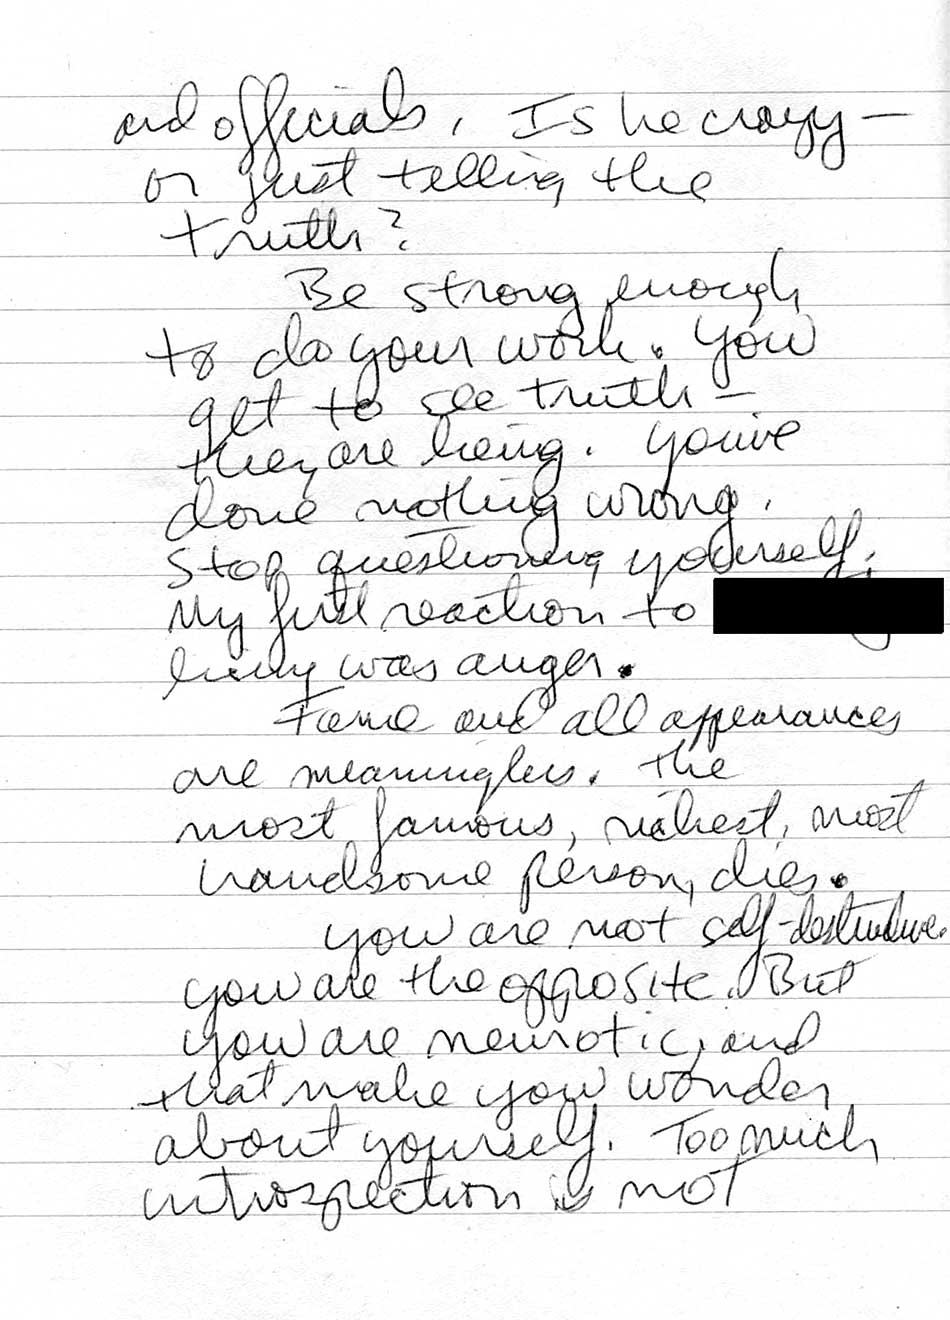 and officials. Is he crazy —
or just telling the
truth?
Be strong enough
to do your work. You
get to see truth —
they are being. You've
done nothing wrong.
Stop questioning yourself.
My first reaction to
was anger.
Fame and all appearances
are meaningless. The
most famous, richest, most
handsome person, dies.
You are not self-destructive.
You are the opposite. But
you are neurotic, and
that make you wonder
about yourself. Too much
introspection is not